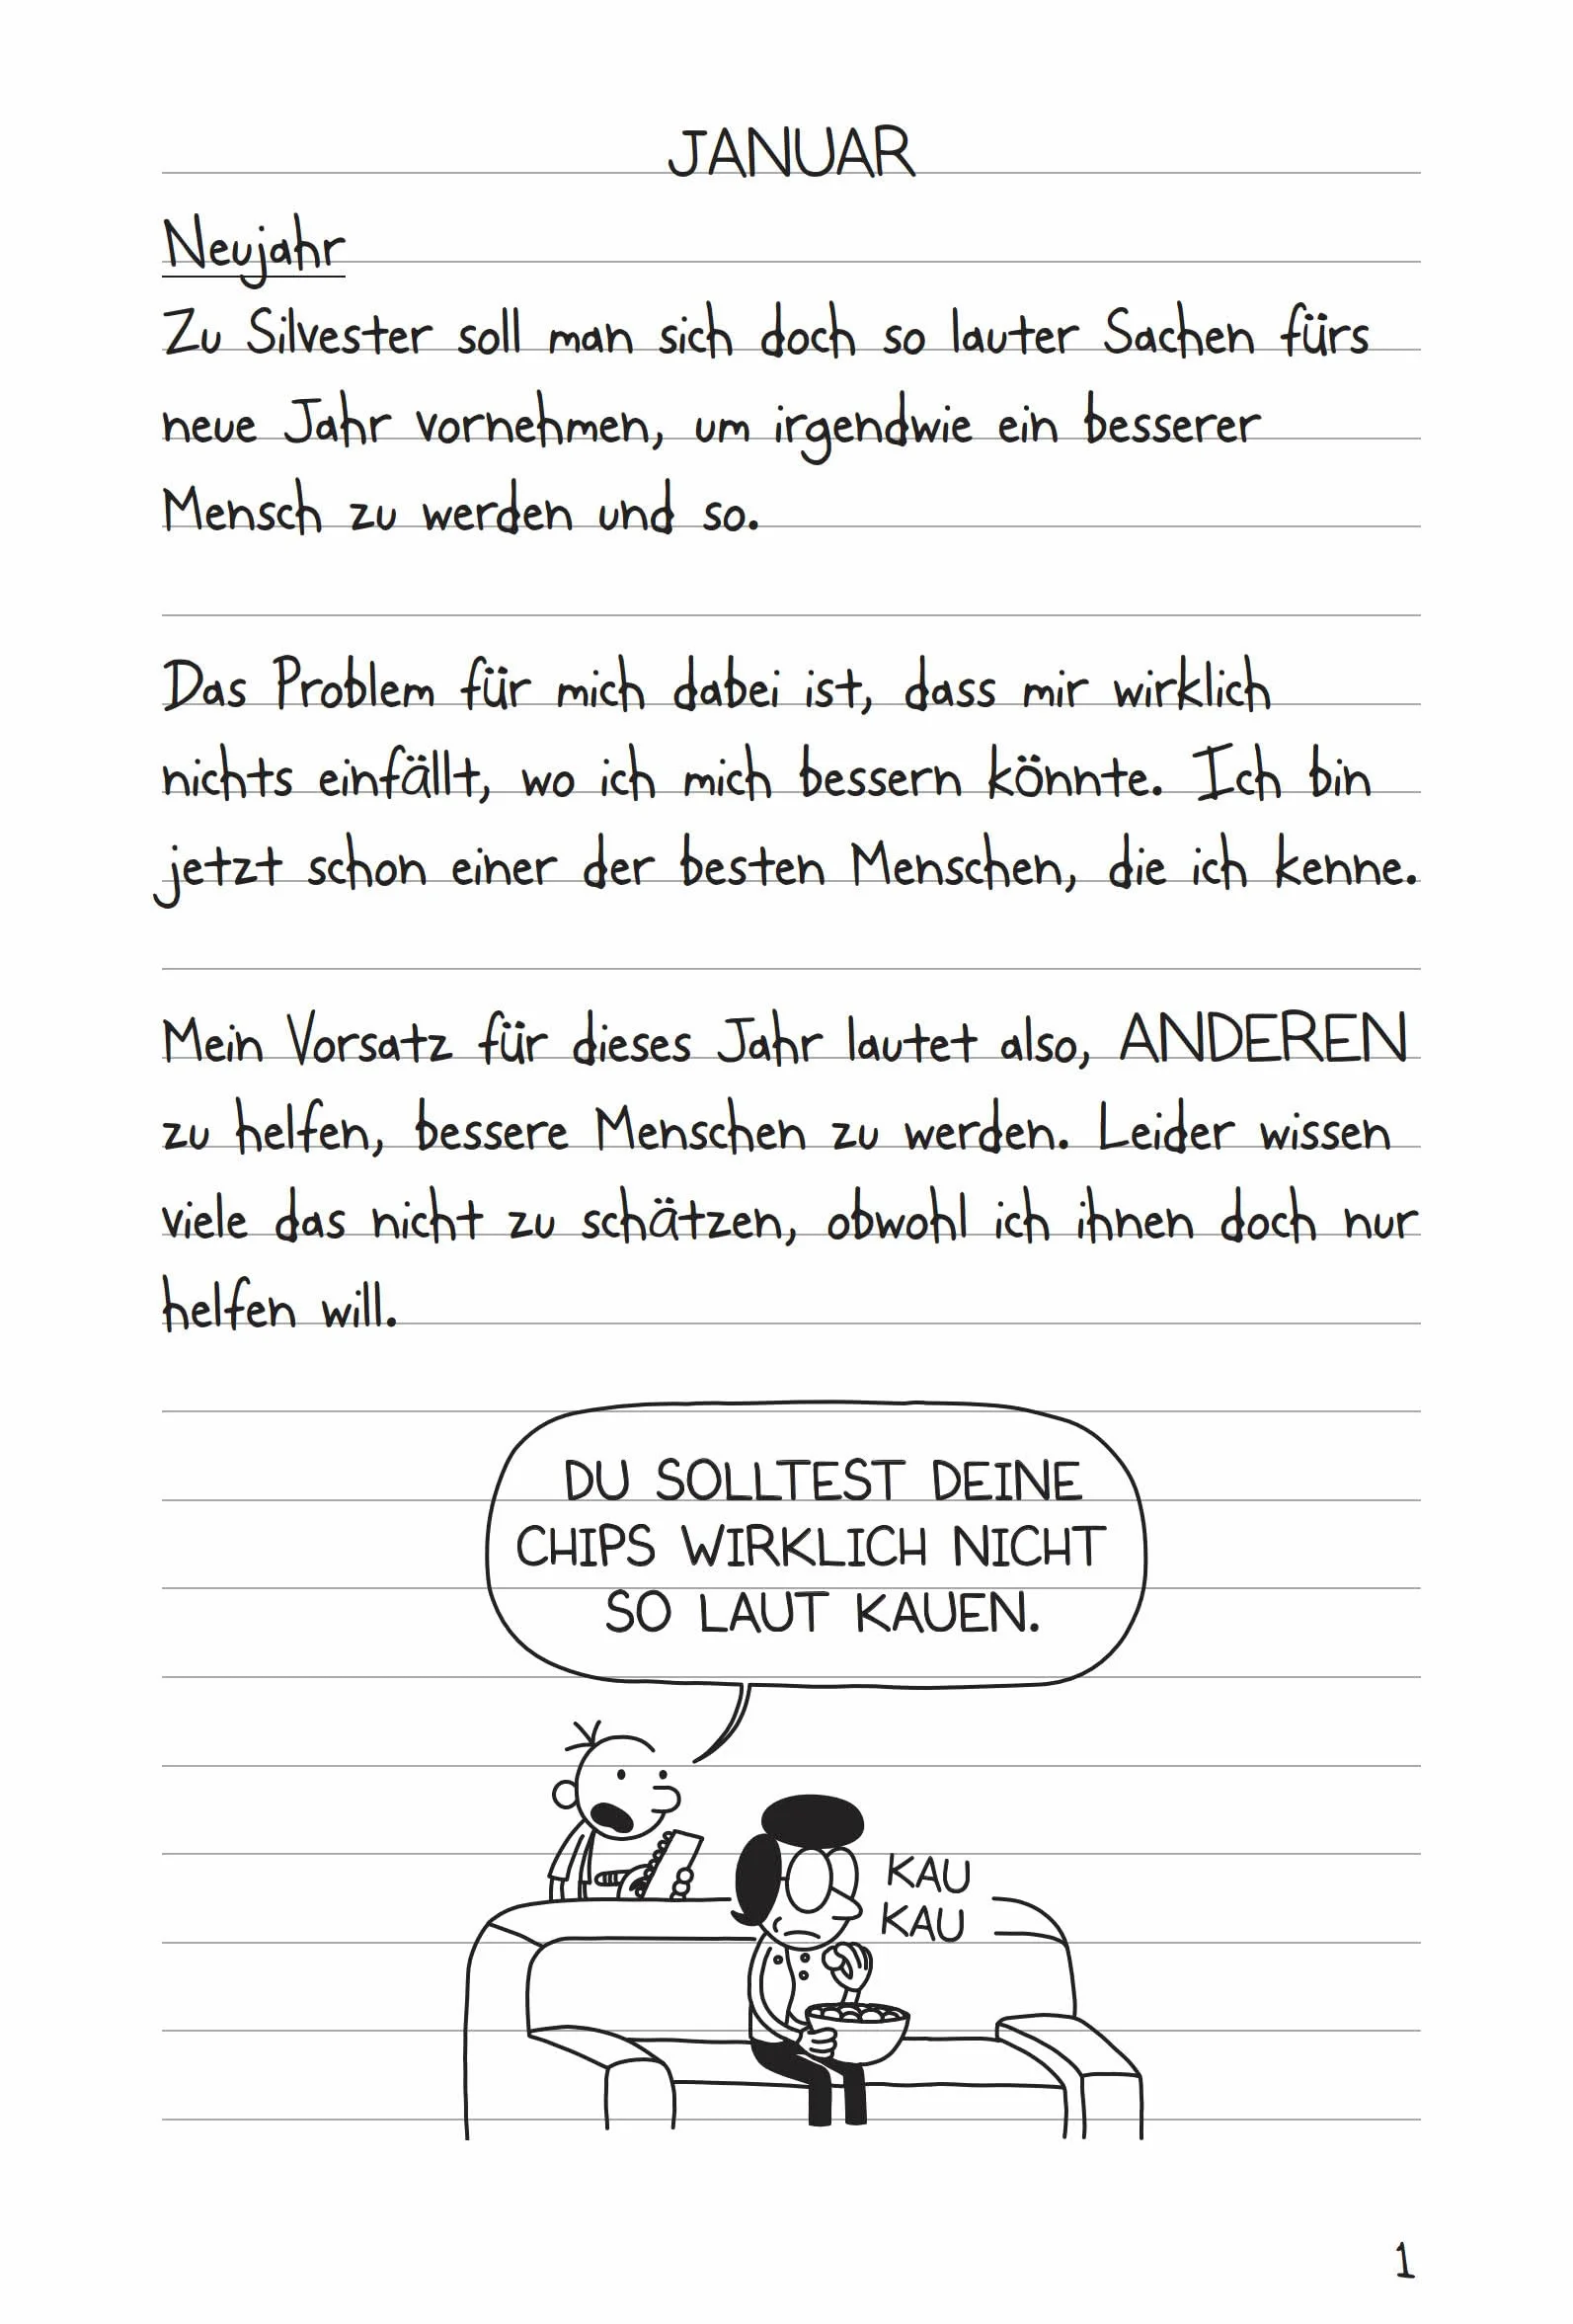 JANUAR
Neujahr
Zu Silvester soll man sich doch so lauter Sachen fürs
neue Jahr vornehmen, um irgendwie ein besserer
Mensch zu werden und so.
Das Problem für mich dabei ist, dass mir wirklich
nichts einfällt, wo ich mich bessern könnte. Ich bin
jetzt schon einer der besten Menschen, die ich kenne.
Mein Vorsatz für dieses Jahr lautet also, ANDEREN
zu helfen, bessere Menschen zu werden. Leider wissen
viele das nicht zu schätzen, obwohl ich ihnen doch nur
helfen will.
DU SOLLTEST DEINE
CHIPS WIRKLICH NICHT
SO LAUT KAUEN.
KAU
KAU
1